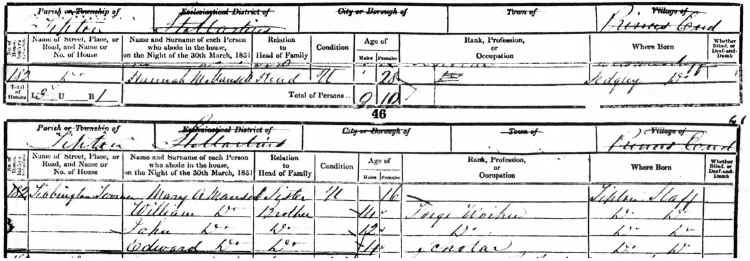 Parish or Township of Ecclesiastical District of City or Borough of Town of Village of
Tipton Princes End
No. of House Name of Street, Place, or Road, and Name or No. of House Name and Surname of each Person who abode in the house, on the Night of the 30th March, 1851 Relation to Head of Family Condition Age of Males Females Rank, Profession, or Occupation Where Born Whether Blind, or Deaf-and-Dumb
182 Do Hannah Mansell Head U 28 Sedgley Do
Total of Houses I U B Total of Persons 9 10
46
Parish or Township of Ecclesiastical District of City or Borough of Town of Village of
Tipton Princes End
Name of Street, Place, or Road, and Name or No. of House Name and Surname of each Person who abode in the house, on the Night of the 30th March, 1851 Relation to Head of Family Condition Age of Males Females Rank, Profession, or Occupation Where Born Whether Blind, or Deaf-and-Dumb
182 Tibbington Mary A Mansell Sister U 16 Tipton Staff
William Do Brother 14 Forge Worker Do Do
John Do Do 12 Do Do Do
Edward Do Do Scholar Do Do